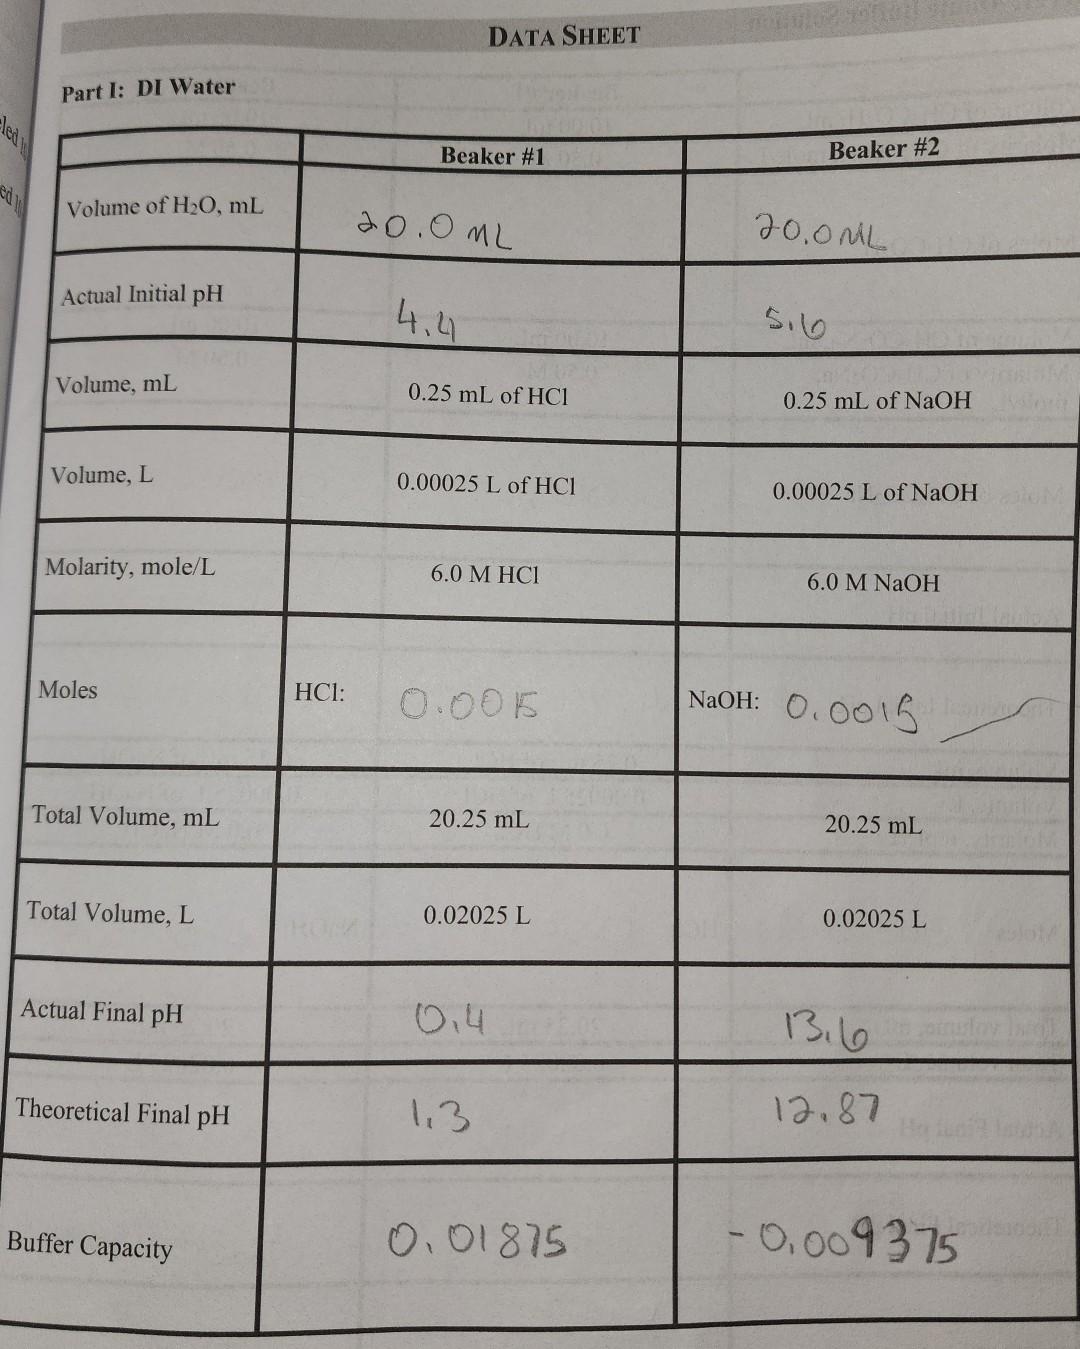 DATA SHEET
Part I: DI Water
Beaker #1 Beaker #2
Volume of H₂O, mL 20.0 mL 20.0 mL
Actual Initial pH 4.4 5.6
Volume, mL 0.25 mL of HCl 0.25 mL of NaOH
Volume, L 0.00025 L of HCl 0.00025 L of NaOH
Molarity, mole/L 6.0 M HCl 6.0 M NaOH
Moles HCl: 0.0015 NaOH: 0.0015
Total Volume, mL 20.25 mL 20.25 mL
Total Volume, L 0.02025 L 0.02025 L
Actual Final pH 0.4 13.6
Theoretical Final pH 1.3 12.87
Buffer Capacity 0.01875 -0.009375